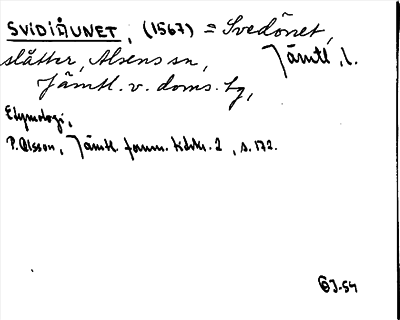 SVIDIÅUNET, (1567) = Svedönet,
slåtter, Alsens sn, Jämtl. l.
Jämtl. v. doms. tg,
Etymologi,
P. Olsson, Jämtl. fornm. tidskr. 2, s. 172.
EJ-54